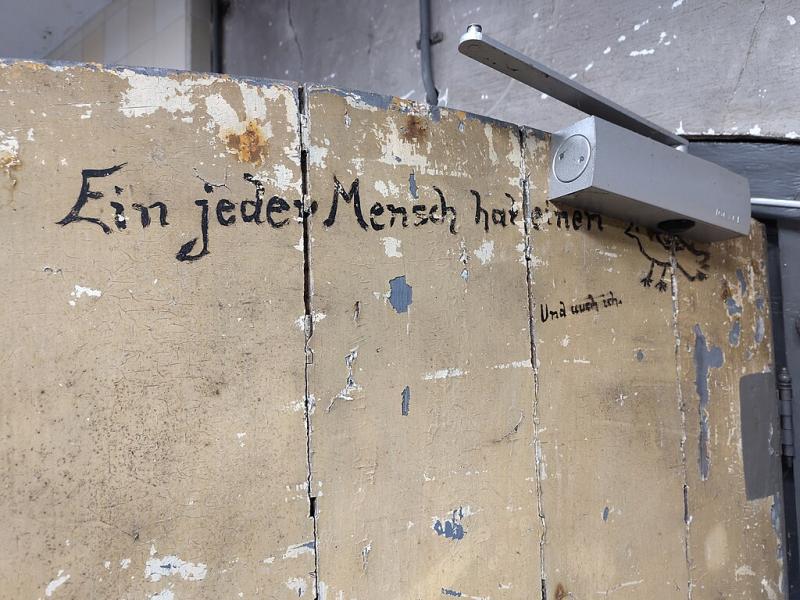 Ein jeder Mensch hat einen
Und auch ich.